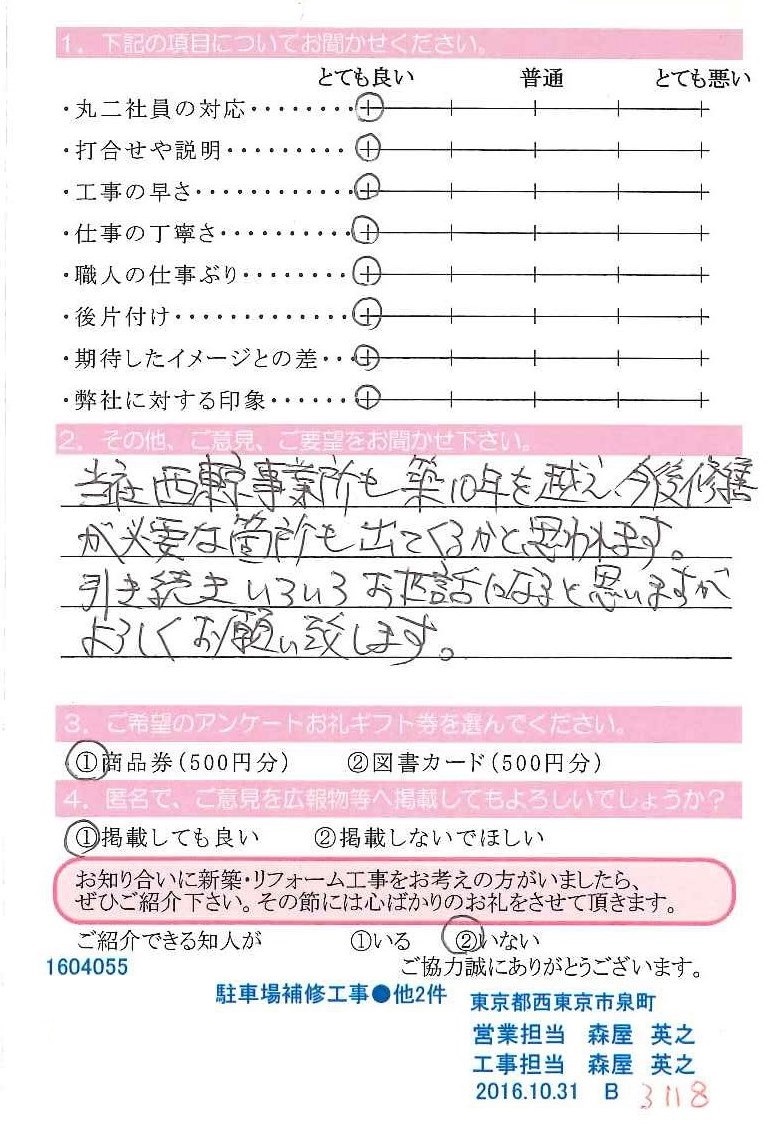 1. 下記の項目についてお聞かせください。
とても良い 普通 とても悪い
・丸二社員の対応········
・打合せや説明·········
・工事の早さ···········
・仕事の丁寧さ··········
・職人の仕事ぶり········
・後片付け·············
・期待したイメージとの差···
・弊社に対する印象······
2. その他、ご意見、ご要望をお聞かせ下さい。
当社西東京事業所も築10年を越え、今後修繕
が必要な箇所も出てくるかと思われます。
引き続きいろいろお世話になると思いますが
よろしくお願い致します。
3. ご希望のアンケートお礼ギフト券を選んでください。
①商品券(500円分) ②図書カード(500円分)
4. 匿名で、ご意見を広報物等へ掲載してもよろしいでしょうか?
①掲載しても良い ②掲載しないでほしい
お知り合いに新築・リフォーム工事をお考えの方がいましたら、
ぜひご紹介下さい。その節には心ばかりのお礼をさせて頂きます。
ご紹介できる知人が ①いる ②いない
1604055 ご協力誠にありがとうございます。
駐車場補修工事●他2件 東京都西東京市泉町
営業担当 森屋 英之
工事担当 森屋 英之
2016.10.31 B 3118